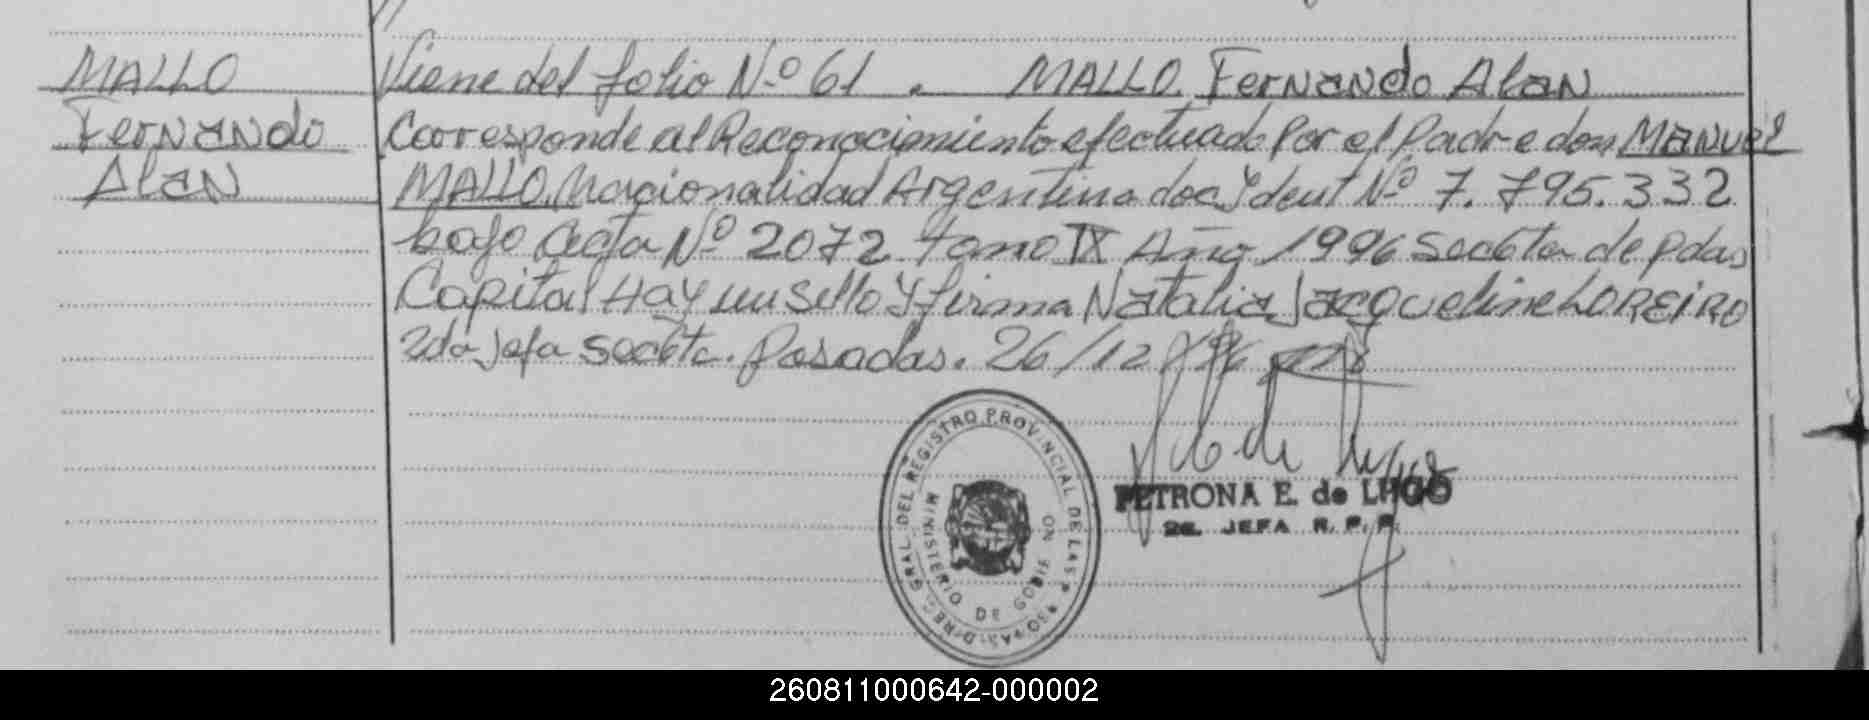 MALLO
Fernando
Alan
Viene del folio Nº 61 . MALLO Fernando Alan
Corresponde al Reconocimiento efectuado Por el Padre don MANUEL
MALLO, Nacionalidad Argentina doc Ydent Nº 7.795.332
bajo Acta Nº 2072 tomo IX Año 1996 Seccta de Pdas
Capital Hay un Sello Y firma Natalia Jacqueline LOREIRO
2da Jefa Seccta. Posadas. 26/12/96
DIREC. GRAL. DEL REGISTRO PROVINCIAL DE LAS PERSONAS
MINISTERIO DE GOBIERNO
PETRONA E. de LUGO
2a. JEFA R. P. P.
260811000642-000002